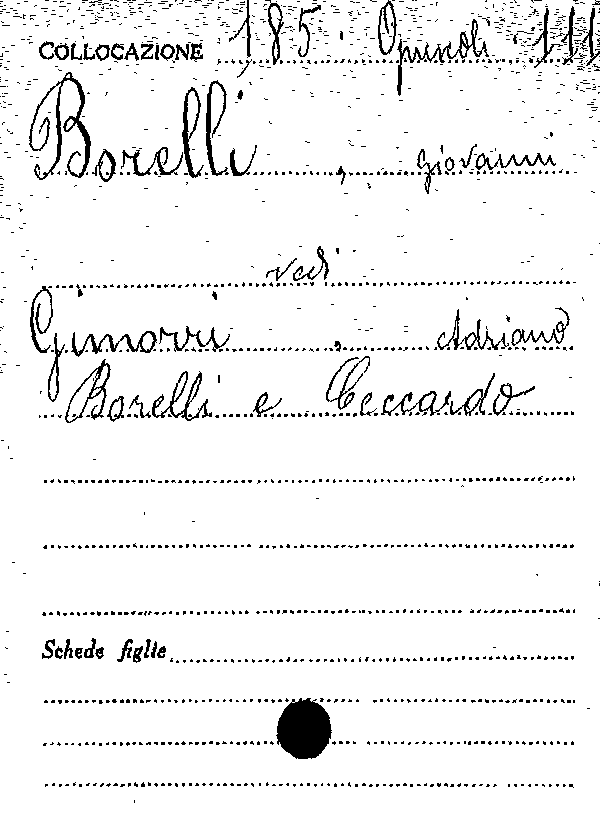 COLLOCAZIONE 185. Opuscoli 111
Borelli, Giovanni
vedi
Gimorri, Adriano
Borelli e Ceccardo
Schede figlie